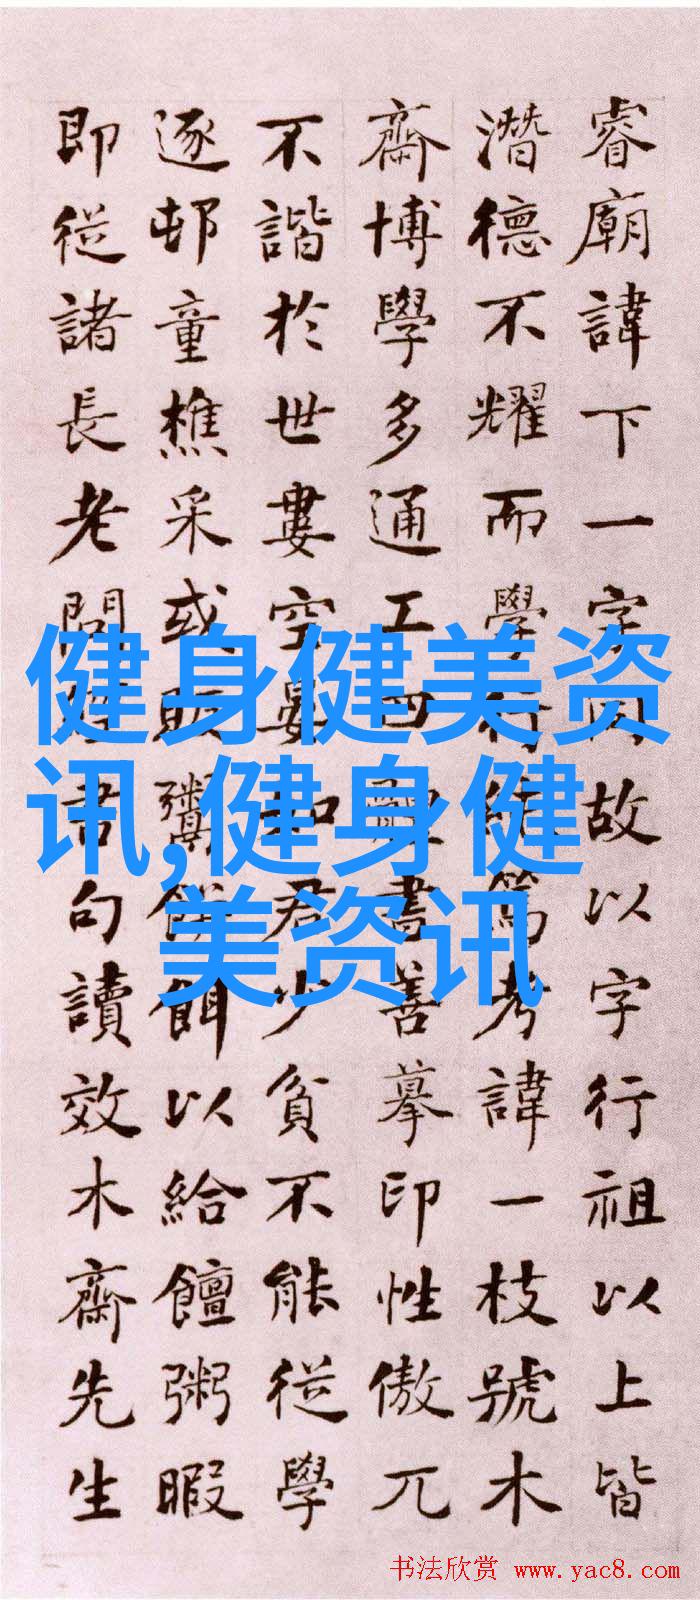 睿廟諱下一字同故以字行祖以上皆
潛德不耀而學行純篤考諱一枝號木
齋博學多通工四體書善摹印性傲兀
不諧於世婁空晏如君少貧不能從學
逐邨童樵采或販鬻餅餌以給饘粥暇
即從諸長老問書句讀效木齋先生
健身健美资
讯,健身健
美资讯
书法欣赏 www.yac8.com